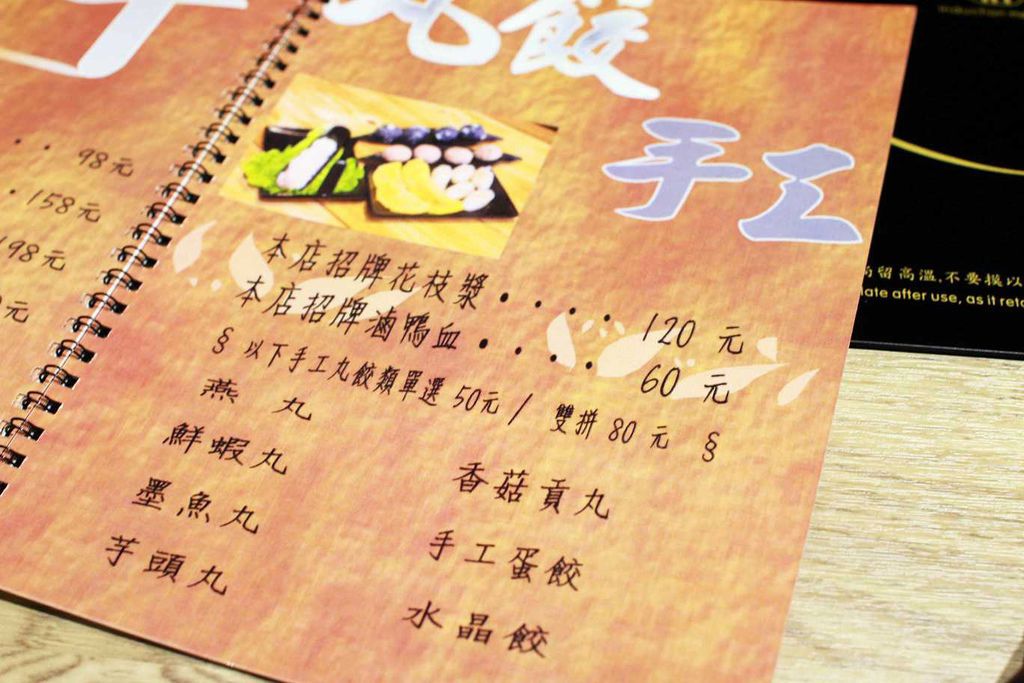 丸餃
手工
98元
158元
198元
元
本店招牌花枝漿.....120 元
本店招牌滷鴨血.....60 元
§ 以下手工丸餃類單選 50元 / 雙拼 80 元 §
燕 丸
鮮蝦丸
墨魚丸
芋頭丸
香菇貢丸
手工蛋餃
水晶餃
留高溫,不要摸以
late after use, as it reta